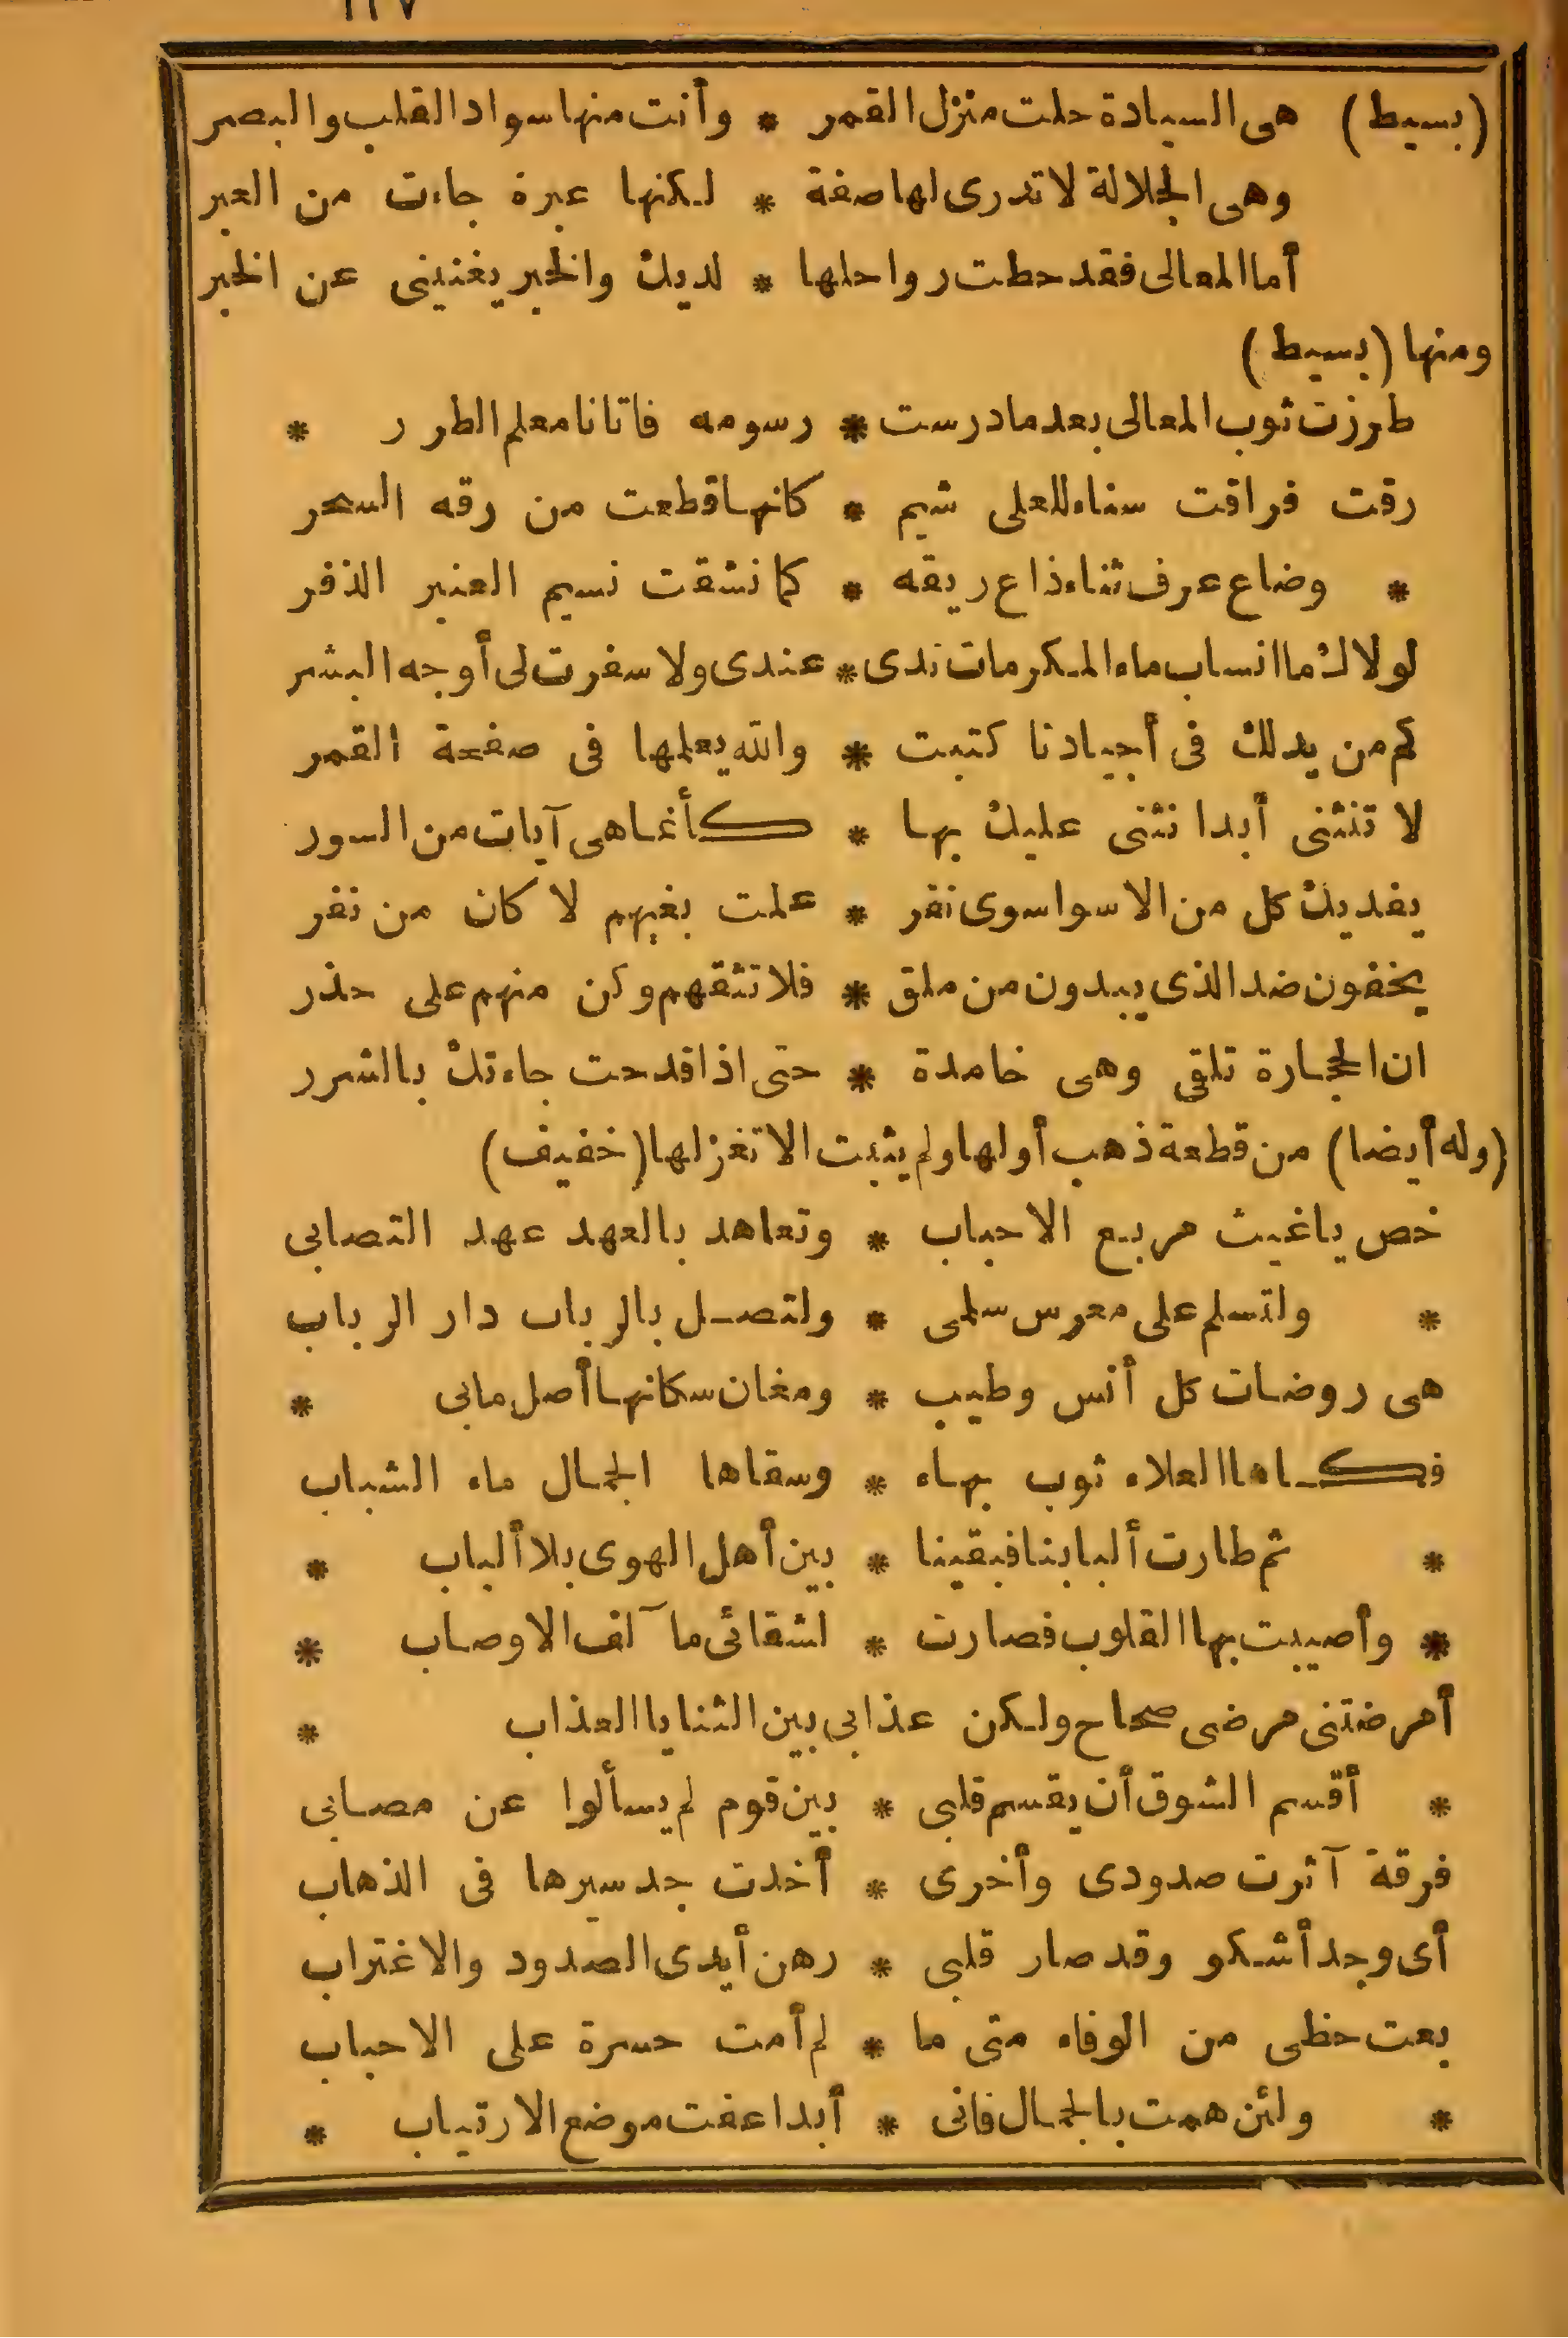 (بسيط) هى السيادة حلت منزل القمر * وأنت منها سواد القلب والبصر
وهى الجلالة لا تدرى لها صفة * لكنها عبرة جاءت من العبر
أما المعالى فقد حطت رواحلها * لديك والخبر يغنينى عن الخبر
ومنها (بسيط)
طرزت ثوب المعالى بعد ما درست * رسومه فاتانا معلم الطرر *
رقت فراقت سناء للعلى شيم * كانها قطعت من رقه السحر
* وضاع عرف ثناء ذاع ريقه * كما نشقت نسيم العنبر الذفر
لولاك ما انساب ماء المكرمات ندى * عندى ولا سفرت لى أوجه البشر
كم من يد لك فى أجيادنا كتبت * والله يعلمها فى صفحة القمر
لا تنثنى أبدا نثنى عليك بها * كأنما هى آيات من السور
يفديك كل من الاسوا سوى نفر * علمت بغيهم لا كان من نفر
يخفون ضد الذى يبدون من ملق * فلا تثقهم وكن منهم على حذر
ان الحجارة تلقى وهى خامدة * حتى اذا قدحت جاءتك بالشرر
(وله أيضا) من قطعة ذهب أولها ولم يثبت الا تغزلها (خفيف)
خص ياغيث مربع الاحباب * وتعاهد بالعهد عهد التصابى
* ولتسلم على معرس سلمى * ولتصل بالرباب دار الرباب
هى روضات كل أنس وطيب * ومغان سكانها أصل مابى *
فكساها العلاء ثوب بهاء * وسقاها الجمال ماء الشباب
* ثم طارت ألبابنا فبقينا * بين أهل الهوى بلا ألباب *
* وأصيبت بها القلوب فصارت * لشقائى مآلف الاوصاب *
أمرضتنى مرضى صحاح ولكن عذابى بين الثنايا العذاب *
* أقسم الشوق أن يقسم قلبى * بين قوم لم يسألوا عن مصابى
فرقة آثرت صدودى وأخرى * أخذت جد سيرها فى الذهاب
أى وجد أشكو وقد صار قلبى * رهن أيدى الصدود والاغتراب
بعت حظى من الوفاء متى ما * لم أمت حسرة على الاحباب
* ولئن همت بالجمال فانى * أبدا عفت موضع الارتياب *